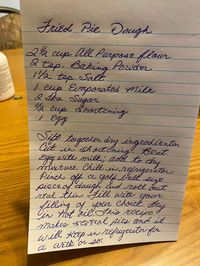 Fried Pie Dough
2 1/2 cup All Purpose flour
2 tsp. Baking Powder
1 1/2 tsp. Salt
1 cup Evaporated Milk
2 tbs. Sugar
1/2 cup Shortening
1 Egg
Sift together dry ingredients
Cut in shortening. Beat
egg with milk; add to dry
mixture. Chill in refrigerator.
Pinch off a golf ball size
piece of dough and roll out
real thin. Fill with your
filling of your choice. Fry
in Hot oil. This recipe
makes several pies and it
will keep in refrigerator for
a week or so.